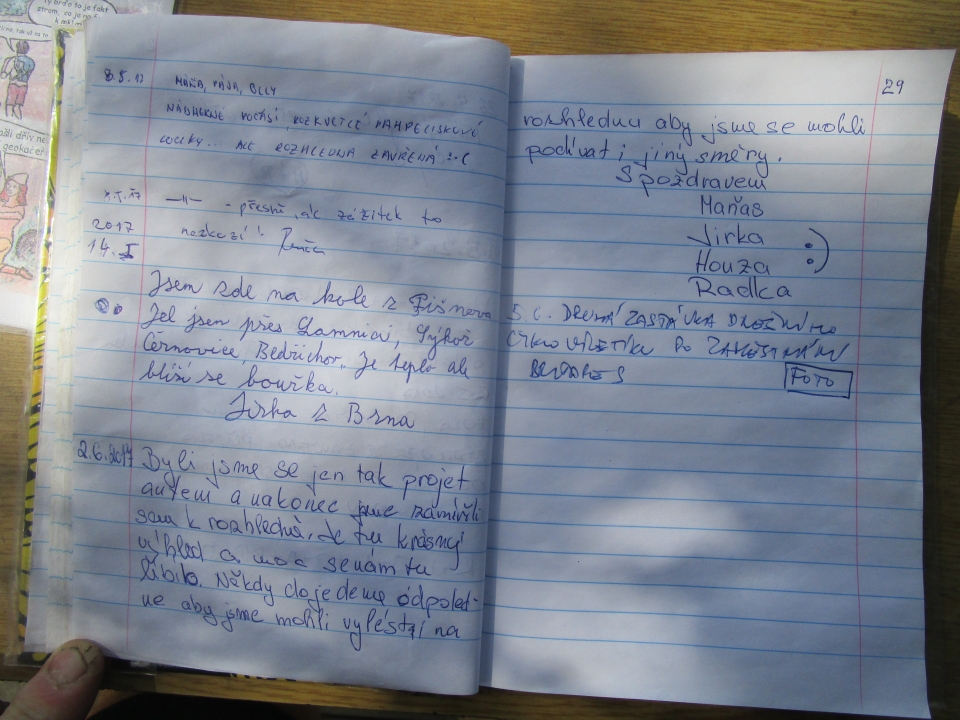 Ty brďo to je fakt
strom, co je na
8.5.17 MÁŇA, PÁJA, OLLY
NÁDHERNÉ POČASÍ, ROZKVETLÉ PAMPELIŠKOVÉ
LOUKY... ALE ROZHLEDNA ZAVŘENÁ :-(
8.5.17 —||— - přesně, ale zážitek to
nezkazí!
2017
14.5
Jsem zde na kole z Tišnova
Jel jsem přes Lomnici, Sýkoř
Černovice, Bedřichov. Je teplo ale
blíží se bouřka.
Jirka z Brna
2.6.2017 Byli jsme se jen tak projet
autem a nakonec jsme zamířili
sem k rozhledně. Je tu krásný
výhled a moc se nám tu
líbilo. Někdy dojedeme odpoled-
ne aby jsme mohli vylést na
29
rozhlednu aby jsme se mohli
podívat i jiný směry.
S pozdravem
Maňas
Jirka
Houza :)
Radka
5. C. DRUHÁ ZASTÁVKA DNEŠNÍHO
CYKLOVÝLETÍKU PO
FOTO